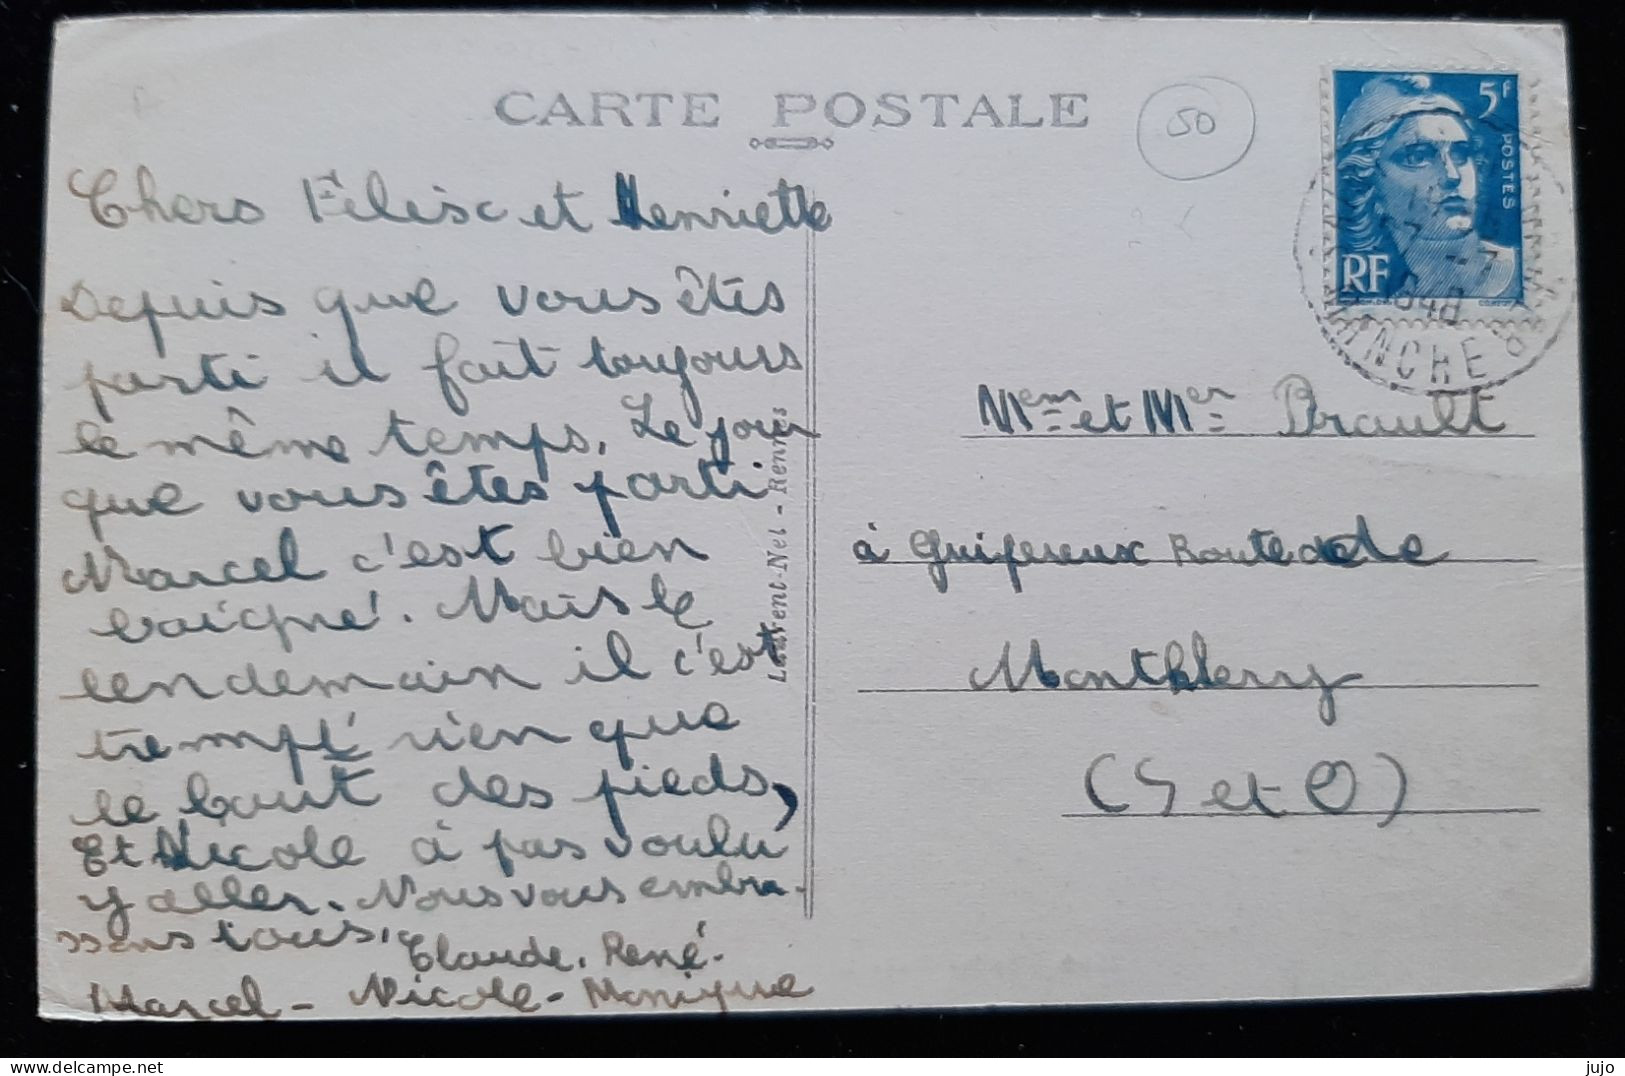 CARTE POSTALE
50
5f
POSTES
RF
MANCHE
1948
Chers Félisc et Henriette
Depuis que vous êtes
parti il fait toujours
le même temps. Le jour
que vous êtes parti
Marcel c'est bien
baigné. Mais le
lendemain il c'est
trempé rien que
le bout des pieds,
Et Nicole à pas voulu
y aller. Nous vous embra-
ssons tous.
Claude. René.
Marcel - Nicole - Monique
Laurent-Nel - Rennes
Mem et Mer Brault
à Guipereux Route de
Monthlery
(S et O)
jujo